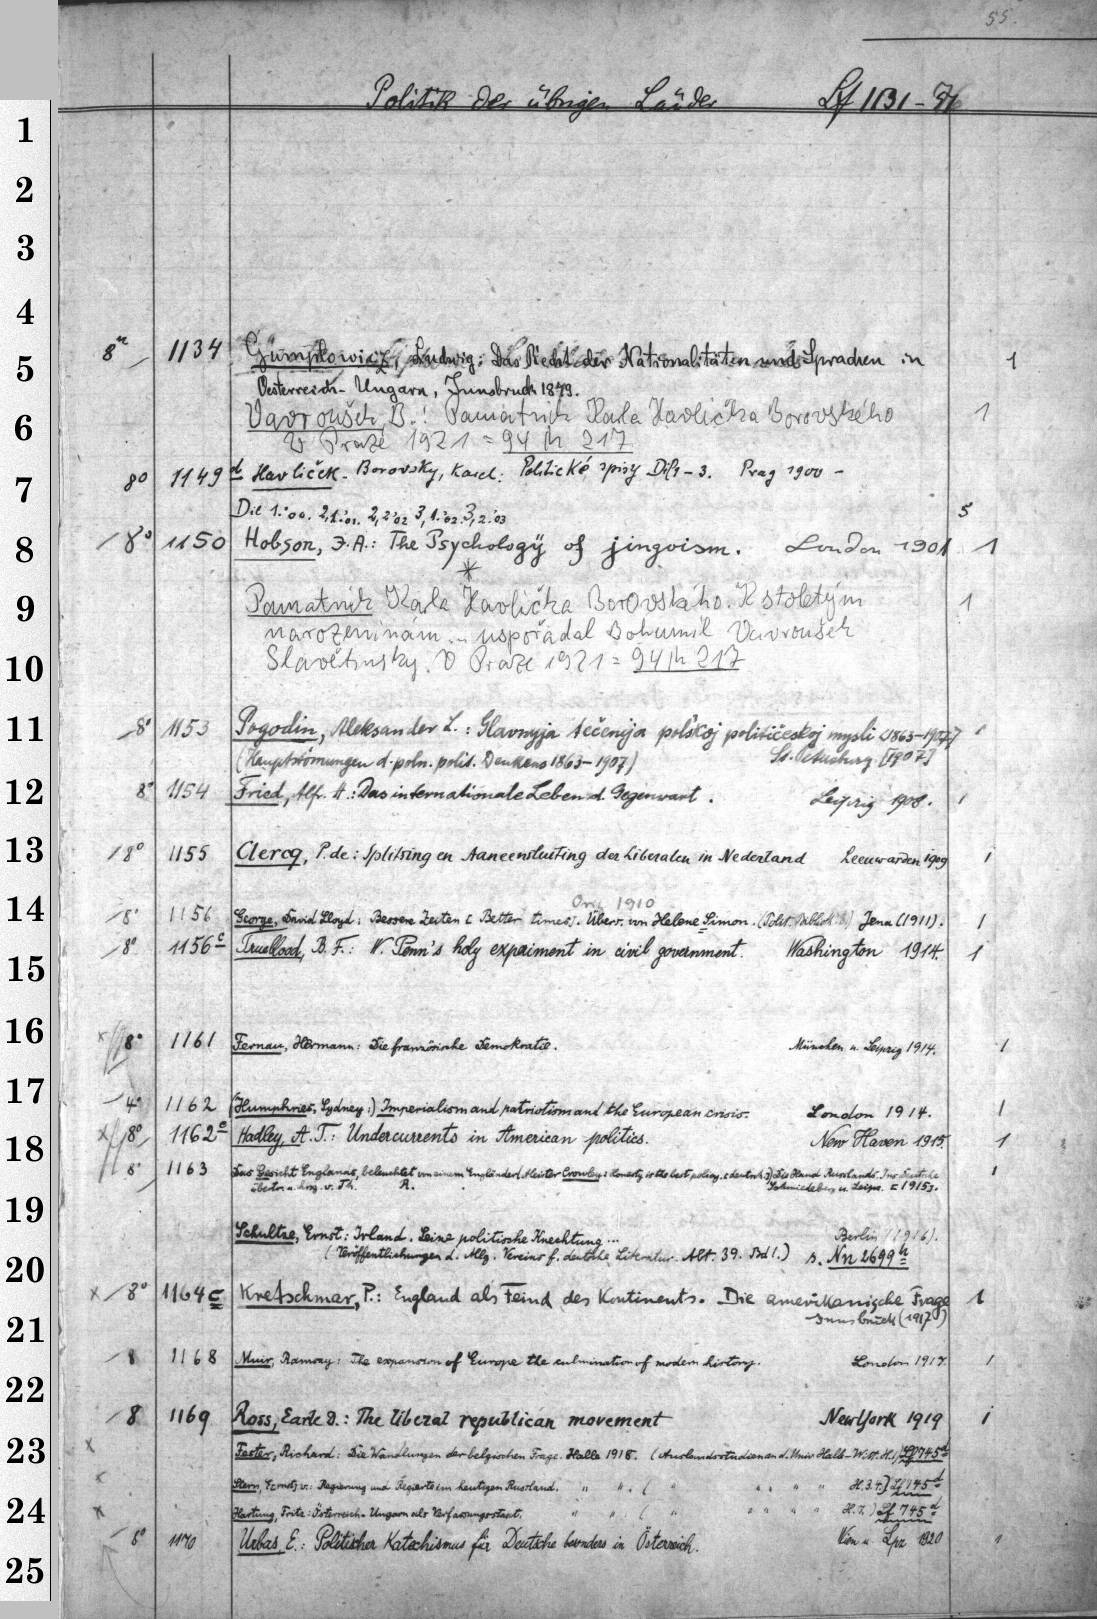 55.
Politik der übrigen Länder Lf 1131-76
1
2
3
4
5
6
7
8
9
10
11
12
13
14
15
16
17
18
19
20
21
22
23
24
25
8° 1134 Gumplowicz, Ludwig: Das Recht der Nationalitäten und Sprachen in 1
Oesterreich-Ungarn, Innsbruck 1879.
Vavroušek, B.: Památník Karla Havlíčka Borovského 1
V Praze 1921 = 94 h 217
8° 1149d Havlíček-Borovsky, Karel: Politické spisy Díl 1-3. Prag 1900 -
Díl 1.:'00. 2,1.:'01. 2,2:'02 3,1.:'02. 3,2.:'03 5
8° 1150 Hobson, J.A.: The Psychology of jingoism. London 1901 1
Památník Karla Havlíčka Borovského. K stoletým 1
narozeninám ... uspořádal Bohumil Vavroušek
Slavětínsky. V Praze 1921 = 94 h 217
8° 1153 Pogodin, Aleksander L.: Glavnyja tečenija pol'skoj političeskoj mysli <1863-1907> 1
(Hauptströmungen d. poln. polit. Denkens 1863-1907) St. Petersburg. [1907]
8° 1154 Fried, Alfr. H.: Das internationale Leben d. Gegenwart. Leipzig 1908. 1
8° 1155 Clercq, P. de: Splitsing en Aaneensluiting der Liberalen in Nederland Leeuwarden 1909 1
Orig. 1910
8° 1156 George, David Lloyd: Bessere Zeiten [Better times]. Übers. von Helene Simon. Jena (1911). 1
8° 1156c Trueblood, B. F.: W. Penn's holy expeiment in civil government. Washington 1914. 1
8° 1161 Fernau, Hermann: Die französische Demokratie. München u. Leipzig 1914. 1
4° 1162 (Humphries, Sydney:) Imperialism and patriotism and the European crisis. London 1914. 1
8° 1162c Hadley, A.T.: Undercurrents in American politics. New Haven 1915. 1
8° 1163 Das Gesicht Englands, beleuchtet von einem Engländer (Aleister Crowley: Honesty is the best policy, deutsch) Die Hand Russlands. Ins Deutsche 1
übertr. u. hrsg. v. Th. R. Schmiedeberg u. Leipz. [1915].
Schultze, Ernst: Irland. Seine politische Knechtung ... Berlin (1916).
(Veröffentlichungen d. Allg. Vereins f. deutsche Literatur. Abt. 39. Bd 1.) s. Nn 2699h
8° 1164c Kretschmar, P.: England als Feind des Kontinents. Die amerikanische Frage 1
Innsbruck (1917)
8 1168 Muir, Ramsay: The expansion of Europe the culmination of modern history. London 1917. 1
8 1169 Ross, Earle D.: The liberal republican movement New York 1919 1
Fester, Richard: Die Wandlungen der belgischen Frage. Halle 1918. (Auslandsstudien an d. Univ Halle-Witt. H.1) Lf 745d
Stern, Ernst v.: Regierung und Regierte im heutigen Russland. " " ( " " " " H.3.4.) Lf 745d
Hartung, Fritz: Österreich-Ungarn als Verfassungsstaat. " " ( " " " " H.7.) Lf 745d
8° 1170 Urbas, E.: Politischer Katechismus für Deutsche besonders in Österreich. Wien u. Lpz 1920 1